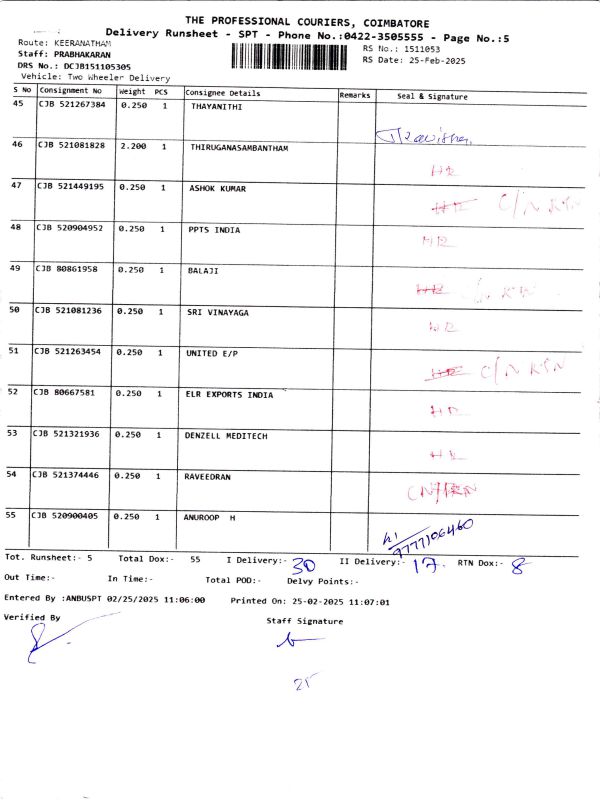 THE PROFESSIONAL COURIERS, COIMBATORE
Delivery Runsheet - SPT - Phone No.:0422-3505555 - Page No.:5
Route: KEERANATHAM RS No.: 1511053
Staff: PRABHAKARAN RS Date: 25-Feb-2025
DRS No.: DCJB151105305
Vehicle: Two Wheeler Delivery
S No Consignment No Weight PCS Consignee Details Remarks Seal & Signature
45 CJB 521267384 0.250 1 THAYANITHI
46 CJB 521081828 2.200 1 THIRUGANASAMBANTHAM
47 CJB 521449195 0.250 1 ASHOK KUMAR C/N RTN
48 CJB 520904952 0.250 1 PPTS INDIA
49 CJB 80861958 0.250 1 BALAJI
50 CJB 521081236 0.250 1 SRI VINAYAGA
51 CJB 521263454 0.250 1 UNITED E/P C/N RTN
52 CJB 80667581 0.250 1 ELR EXPORTS INDIA
53 CJB 521321936 0.250 1 DENZELL MEDITECH
54 CJB 521374446 0.250 1 RAVEEDRAN
55 CJB 520900405 0.250 1 ANUROOP H
Tot. Runsheet:- 5 Total Dox:- 55 I Delivery:- 30 II Delivery:- 17. RTN Dox:- 8
Out Time:- In Time:- Total POD:- Delvy Points:-
Entered By :ANBUSPT 02/25/2025 11:06:00 Printed On: 25-02-2025 11:07:01
Verified By Staff Signature
25